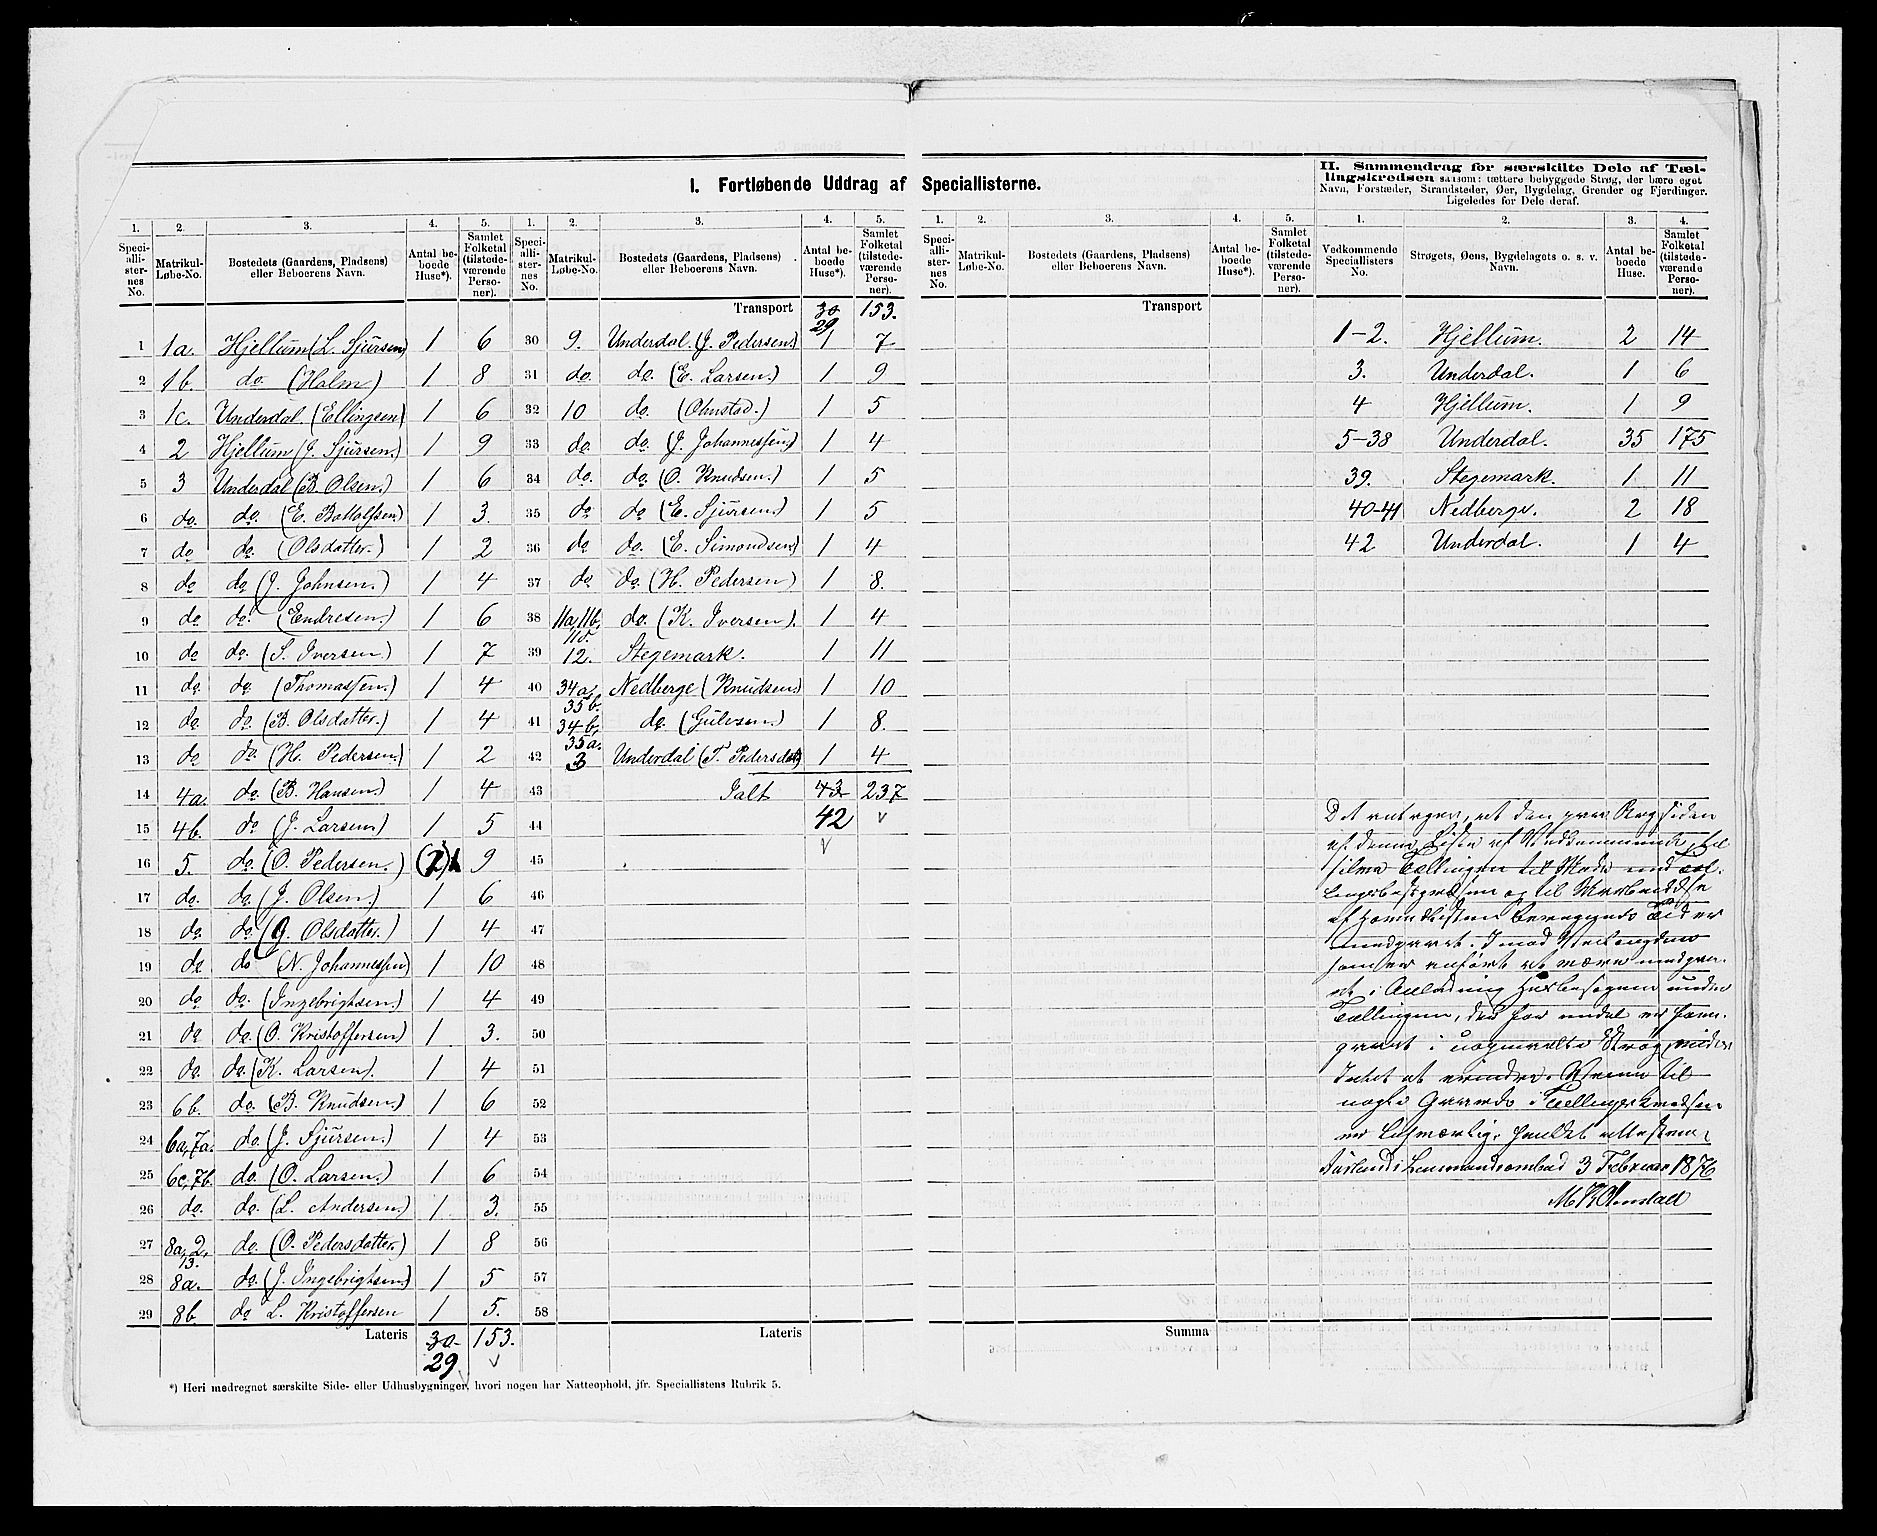 I. Fortløbende Uddrag af Speciallisterne.
II. Sammendrag for særskilte Dele af Tæl-
lingskredsen saasom: tættere bebyggede Strøg, der bære eget
Navn, Forstæder, Strandsteder, Øer, Bygdelag, Grender og Fjerdinger.
Ligeledes for Dele deraf.
1. 2. 3. 4. 5.
Speciallisternes No. Matrikul-Løbe-No. Bostedets (Gaardens, Pladsens) eller Beboerens Navn. Antal beboede Huse*). Samlet Folketal (tilstedeværende Personer).
1 1a. Hjellum (L. Sjursen) 1 6
2 1b. do (Holm) 1 8
3 1c. Underdal (Ellingsen) 1 6
4 2 Hjellum (J. Sjursen.) 1 9
5 3 Underdal (B. Olsen.) 1 6
6 do. do. (E. Bottolfsen.) 1 3.
7 do do. (Olsdatter.) 1 2
8 do do (J. Johnsen.) 1 4
9 do do. (Endresen.) 1 6
10 do do. (S. Iversen.) 1 7
11 do do. (Thomassen.) 1 4
12 do. do (B. Olsdatter.) 1 4
13 do do. (H. Pedersen.) 1 2
14 4a. do. (B. Hansen.) 1 4
15 4b. do (J. Larsen.) 1 5
16 5. do. (O. Pedersen.) (2) 1 9
17 do. do (J. Olsen) 1 6
18 do. do (G. Olsdatter.) 1 4
19 do do (N. Johannessen) 1 10
20 do do. (Ingebrigtsen.) 1 4
21 do do. (O. Kristoffersen) 1 3.
22 do. do. (K. Larsen). 1 4
23 6b. do. (B. Knudsen.) 1 6
24 6a, 7a. do. (J. Sjursen.) 1 4
25 6c, 7b. do. (O. Larsen.) 1 6
26 do. do. (L. Andersen.) 1 3.
27 8a, 2, 13. do. (O. Pedersdatter.) 1 8
28 8a. do. (J. Ingebrigtsen.) 1 5
29 8b. do L. Kristoffersen 1 5.
Lateris 30 153.
29
*) Heri medregnet særskilte Side- eller Udhusbygninger, hvori nogen har Natteophold, jfr. Speciallistens Rubrik 5.
1. 2. 3. 4. 5.
Speciallisternes No. Matrikul-Løbe-No. Bostedets (Gaardens, Pladsens) eller Beboerens Navn. Antal beboede Huse*). Samlet Folketal (tilstedeværende Personer).
Transport 30 153.
29
30 9. Underdal. (J. Pedersen.) 1 7
31 do. do. (E. Larsen.) 1 9
32 10 do. (Ohnstad.) 1 5
33 do. do. (J. Johannessen) 1 4
34 do. do. (O. Knudsen.) 1 5
35 do do (E. Sjursen.) 1 5
36 do do. (E. Simondsen) 1 4
37 do do. (H. Pedersen) 1 8.
38 11a, 11b, 11d. do. (K. Iversen). 1 4
39 12. Stegemark. 1 11
40 34a, 35b. Nedberge (Knudsen.) 1 10
41 34b, 35a. do. (Gulvsen.) 1 8.
42 3 Underdal (T. Pedersdat) 1 4
43 Ialt 43 237
44 42
45
46
47
48
49
50
51
52
53
54
55
56
57
58
Lateris
1. 2. 3. 4. 5.
Speciallisternes No. Matrikul-Løbe-No. Bostedets (Gaardens, Pladsens) eller Beboerens Navn. Antal beboede Huse*). Samlet Folketal (tilstedeværende Personer).
Transport
Summa
1. 2. 3. 4.
Vedkommende Speciallisters No. Strøgets, Øens, Bygdelagets o. s. v. Navn. Antal beboede Huse. Samlet Folketal (tilstedeværende Personer).
1-2. Hjellum. 2 14
3. Underdal. 1 6
4 Hjellum. 1 9
5-38 Underdal. 35 175
39. Stegemark. 1 11
40-41 Nedberge. 2 18
42 Underdal. 1 4
at den paa Bagsiden
af denne Liste af Vedkommende, til
Tællingen til
og til
af Hovedlisten Tid er
medgaaet. Imod
som er anført at være medgaa-
et i Anledning under
Tællingen, der for
i Strøg,
Intet at erindre. til
nogle Gaarde i Tællingskredsen
er
Lensmandsombud 3 Februar 1876
M K Ohnstad